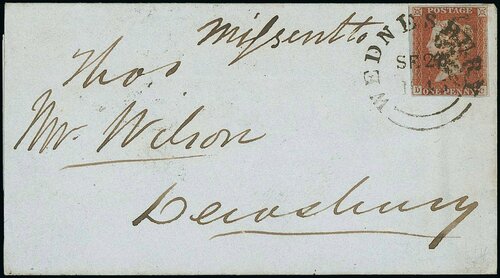 Missent to
WEDNESBURY
SE 2
POSTAGE
ONE PENNY
Thos
Mr. Wilson
Dewsbury